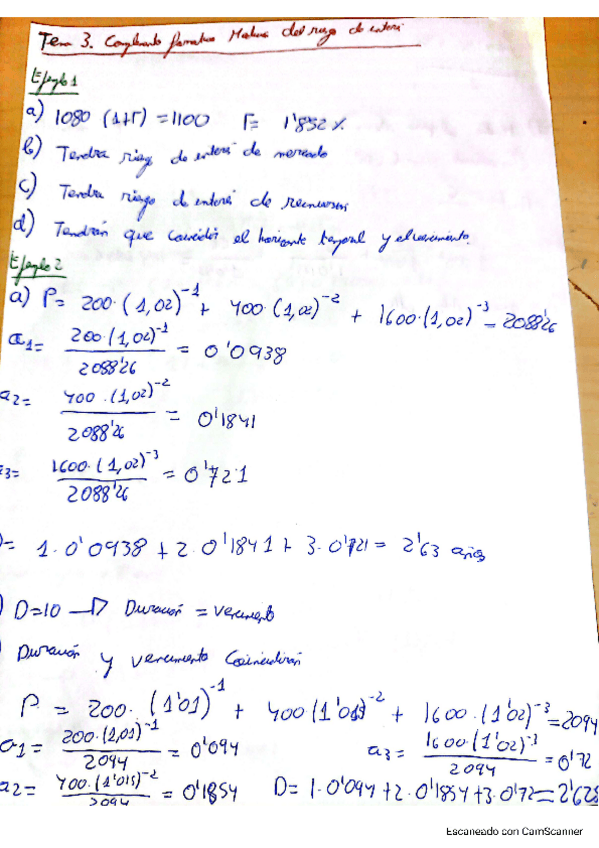 Tema 3. Complemento formativo Medida del riesgo de interés
Ejemplo 1
a) 1080 (1+r) = 1100 r= 1'852 %
b) Tendra riesgo de interés de mercado
c) Tendra riesgo de interés de reinversión
d) Tendrán que coincidir el horizonte temporal y el vencimiento.
Ejemplo 2
a) P= 200·(1,02)^-1 + 400·(1,02)^-2 + 1600·(1,02)^-3 = 2088'26
a1= 200·(1,02)^-1 / 2088'26 = 0'0938
a2= 400·(1,02)^-2 / 2088'26 = 0'1841
3= 1600·(1,02)^-3 / 2088'26 = 0'721
= 1·0'0938 + 2·0'1841 + 3·0'721 = 2'63 años
) D=10 → Duración = vencimiento
Duración y vencimiento coincidirán
P = 200·(1'01)^-1 + 400(1'015)^-2 + 1600·(1'02)^-3 = 2094
a1= 200·(1,01)^-1 / 2094 = 0'094 a3= 1600·(1'02)^-3 / 2094 = 0'72
a2= 400·(1'015)^-2 / 2094 = 0'1854 D= 1·0'094 + 2·0'1854 + 3·0'72 = 2'628
Escaneado con CamScanner